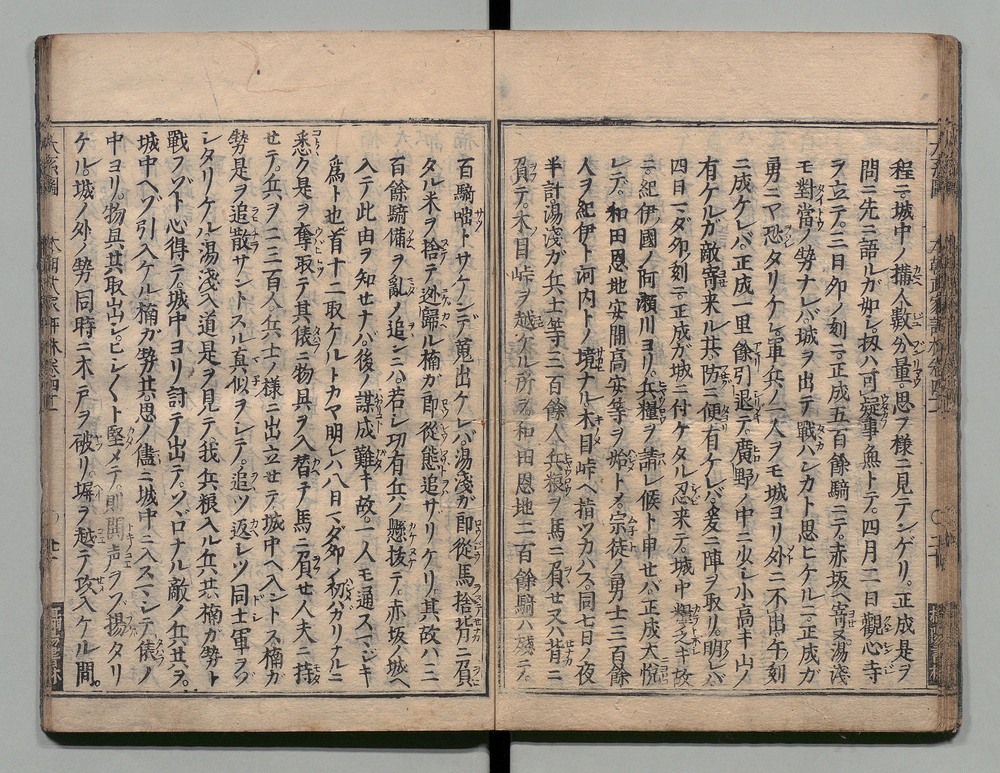 程ニ城中ノ構人數分量。思フ様ニ見テンゲリ。正成是ヲ
問ニ先ニ語ルガ如シ。扨ハ可定事無トテ。四月二日觀心寺
ヲ立テ。三日夘ノ刻ニ。正成五百餘騎ニテ。赤坂ヘ寄ス湯淺
モ對當ノ勢ナレバ。城ヲ出テ戰ハンカト思ヒケルニ。正成ガ
勇ニマ恐タリケレ。軍兵ノ一人ヲモ城ヨリ外ニ不出。午ノ刻
ニ成ケレバ正成一里餘引退テ。廣野ノ中ニ火シ小高キ山ノ
有ケルガ敵寄来ル共。防ニ便有ケレバ。爰ニ陣ヲ取リ。明レバ
四日ニダ夘刻ニ。正成ガ城ニ付ケタル忍来テ。城中糧乏キ故
ニ。紀伊ノ國ノ阿瀬川ヨリ。兵糧ヲ請シ候ト申セバ。正成大悦
レテ。和田恩地安間高安等ヲ始トメ。宗徒ノ勇士三百餘
人ヲ紀伊ト河内トノ境ナル木目峠ヘ指ツカハス。同七日ノ夜
半計。湯淺ガ兵士等三百餘人兵粮ヲ馬ニ負セ又ハ背ニ
負テ。木目峠ヲ越ケル所ヲ。和田恩地二百餘騎ハ殘ニテ。
百騎噇トサケンデ蒐出ケレバ。湯淺ガ郎從馬捨背ニ負
タル米ヲ捨テ迯歸ル楠ガ郎從態追サリケリ。其故ハ三
百餘騎備ヲ亂ノ追シニハ。若シ功有兵ノ懸抜テ。赤坂ノ城ヘ
入テ此由ヲ知セナバ。後ノ謀成難キ故。一人モ通スマジキ
爲ト也首十二取ケルトカマ明レハ八日ニダ夘ノ初カリナルニ
悉ク是ヲ奪取テ其俵ニ物具ヲ入替テ馬ニ負セ人夫ニ持
セテ。兵ヲ二三百人。兵士ノ様ニ出立セテ。城中ヘ入ントス楠ガ
勢是ヲ追散サントスル真似ヲシテ。追ツ返レツ同士軍ヲゾ
シタリケル。湯淺入道是ヲ見テ我兵粮入ル兵共。楠ガ勢ト
戰フゾト心得テ。城中ヨリ討テ出テ。ソゾロナル敵ノ兵共ヲ。
城中ヘゾ引入ケル楠ガ勢共。思ノ儘ニ城中ニ入スマシテ俵ノ
中ヨリ。物具共取出シ。ヒシ〱ト堅メテ。則鬨声ヲゾ揚タリ
ケル。城ノ外ノ勢同時ニ木戸ヲ破リ。塀ヲ越テ攻入ケル間。